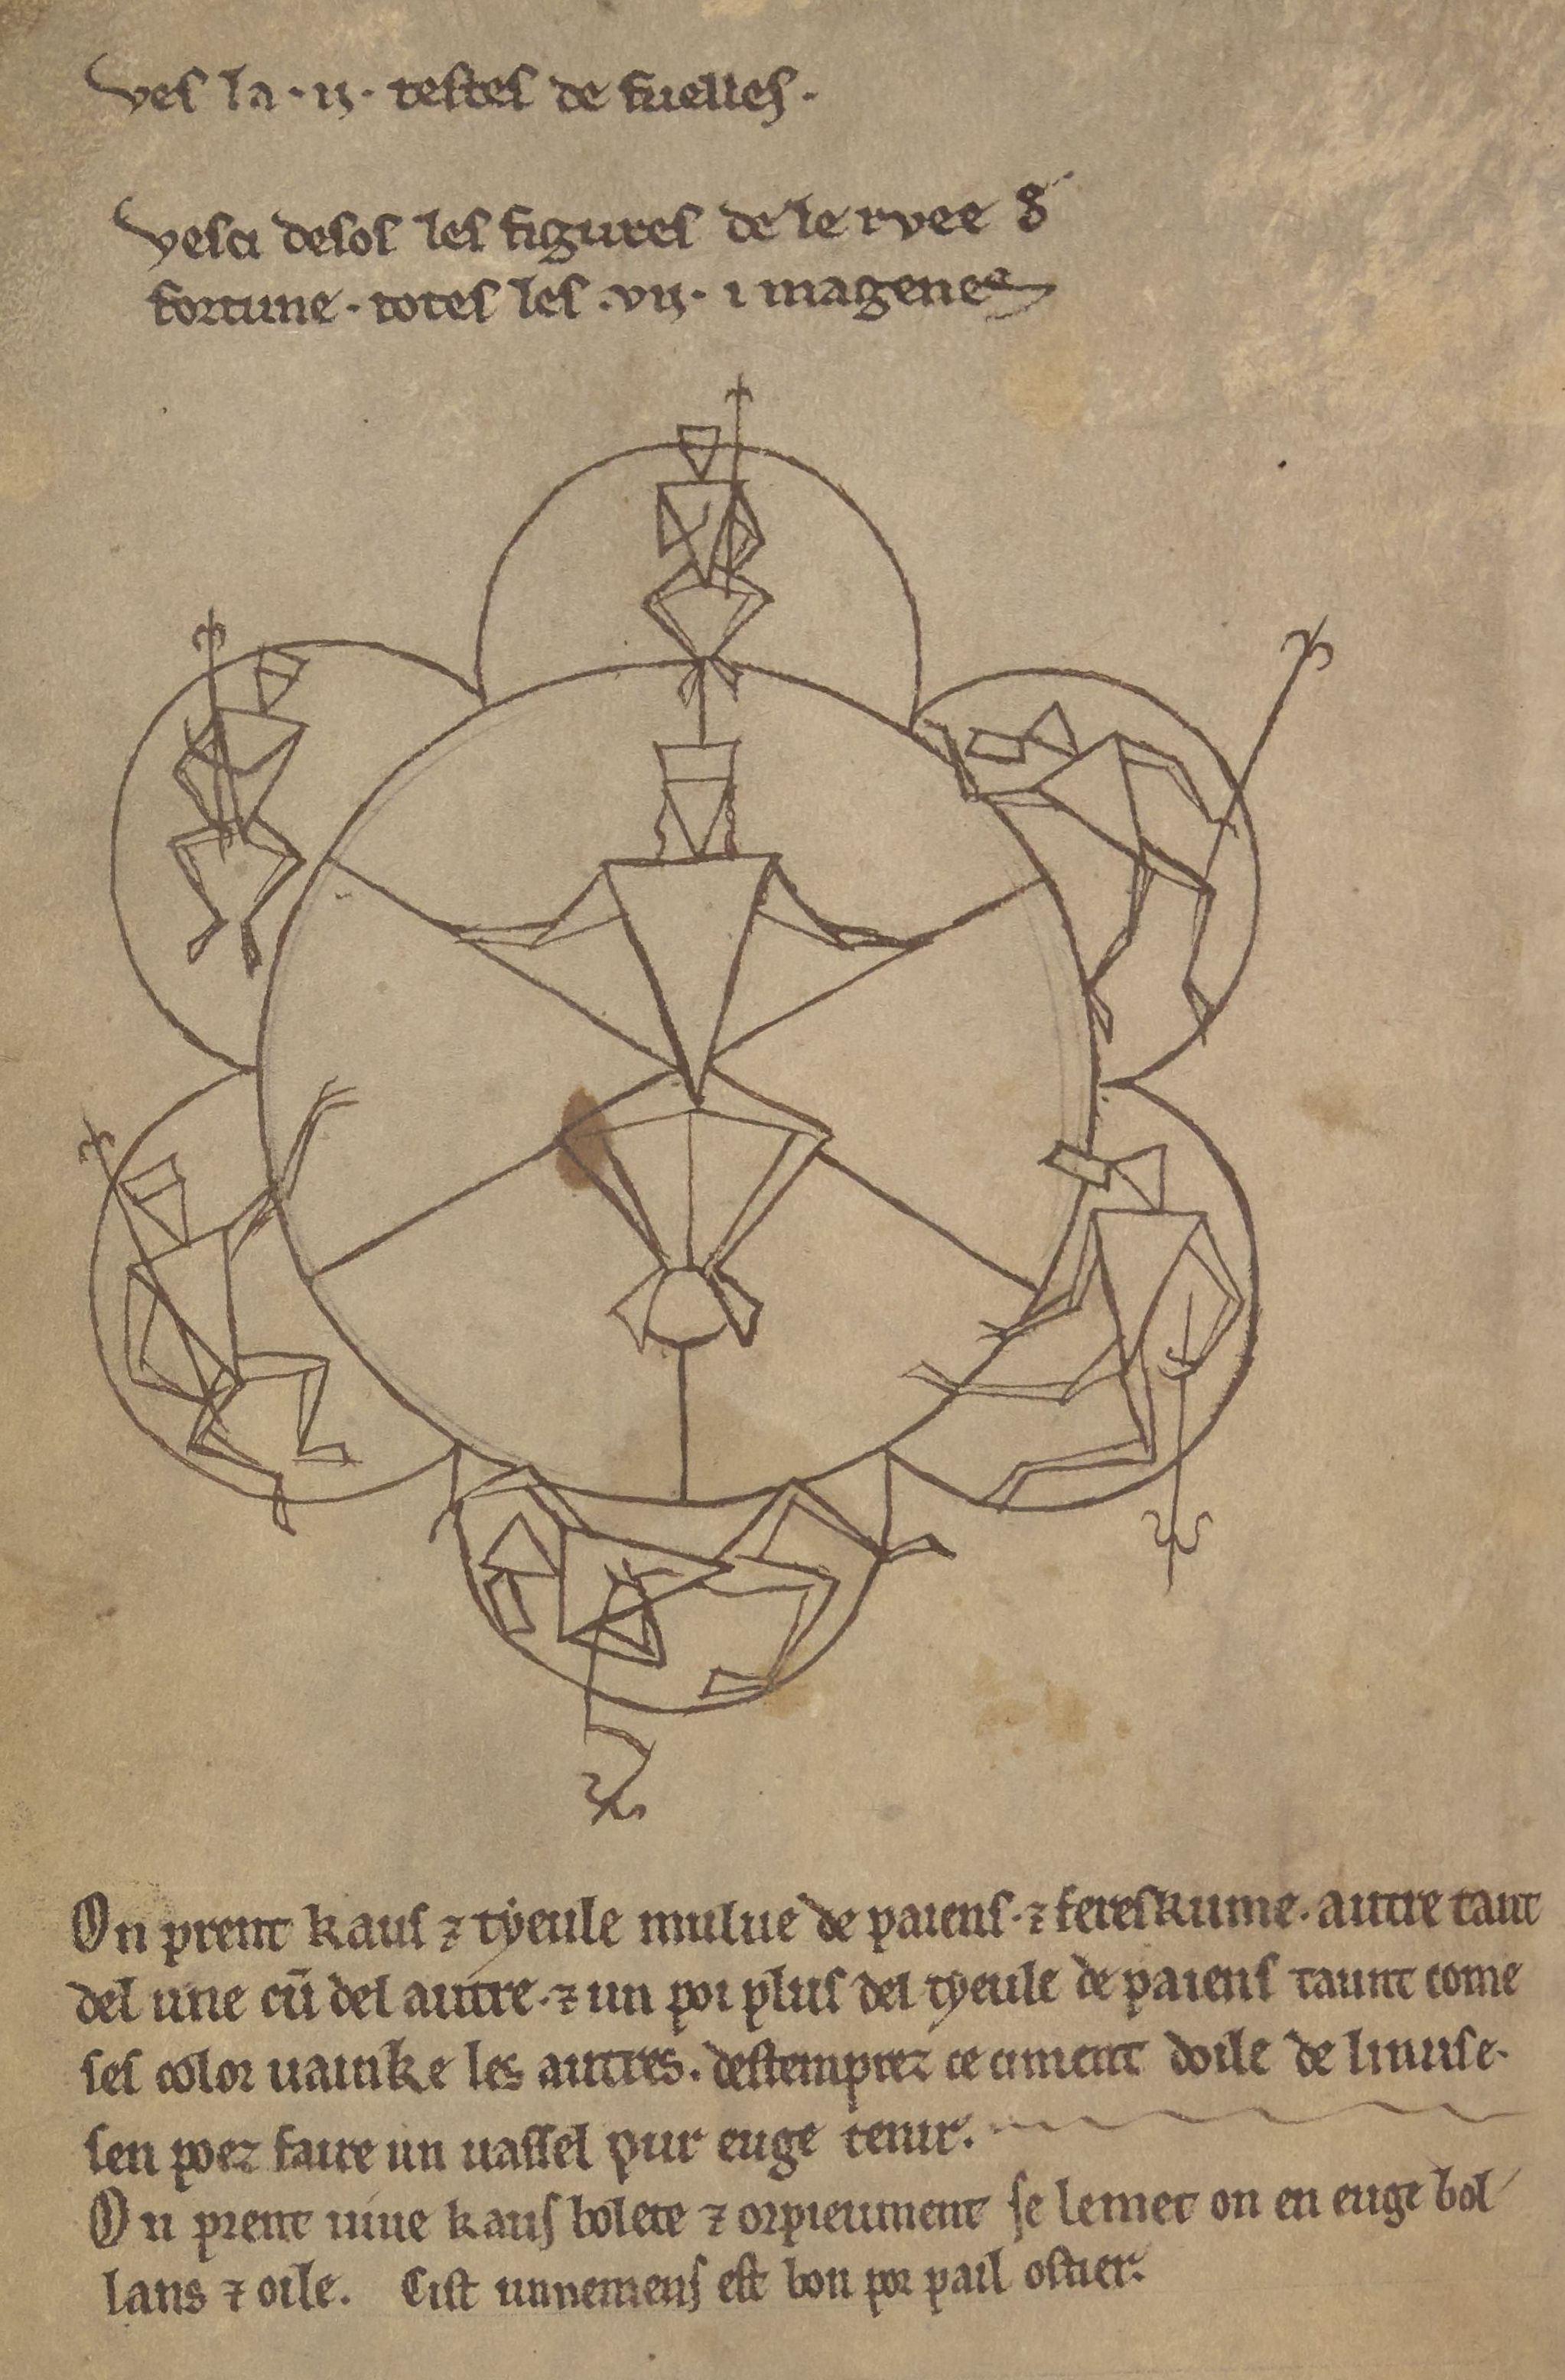 ves la .ij. testes de fuelles.
vesci desos les figures de le ruee d'
fortune. totes les .vij. imagenes
On prent kaus ⁊ tyeule mulue de paiens. ⁊ fereskume. autre tant
del une cū del autre. ⁊ un poi plus del tyeule de paiens taunt come
ses color uainke les autres. destemprez ce ciment doile de linuse.
sen poez faire un uassel pur euge tenir.
On prent uiue kaus bolete ⁊ orpieument se lemet on en euge bol
lans ⁊ oile. Cist unnemens est bon por pail oster.